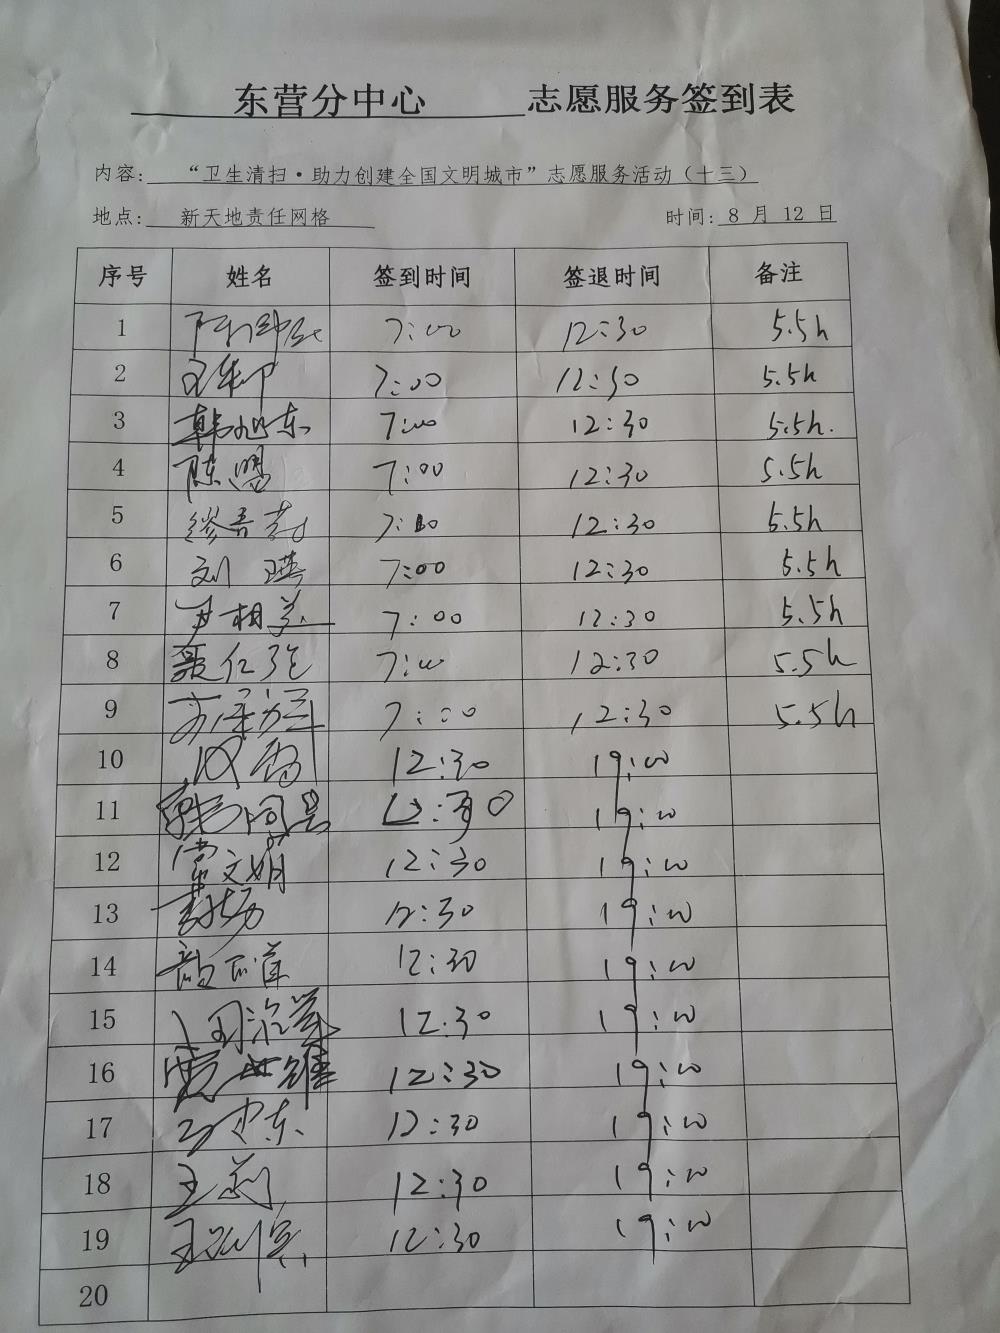 东营分中心 志愿服务签到表
内容: “卫生清扫·助力创建全国文明城市”志愿服务活动(十三)
地点: 新天地责任网格 时间: 8 月 12 日
序号 姓名 签到时间 签退时间 备注
1 7:00 12:30 5.5h
2 7:00 12:30 5.5h
3 韩旭东 7:00 12:30 5.5h.
4 陈鹏 7:00 12:30 5.5h
5 7:00 12:30 5.5h
6 刘瑛 7:00 12:30 5.5h
7 尹相美 7:00 12:30 5.5h
8 聂仁强 7:00 12:30 5.5h
9 7:00 12:30 5.5h
10 12:30 19:00
11 12:30 19:00
12 常文娟 12:30 19:00
13 12:30 19:00
14 12:30 19:00
15 12:30 19:00
16 12:30 19:00
17 12:30 19:00
18 王莉 12:30 19:00
19 12:30 19:00
20